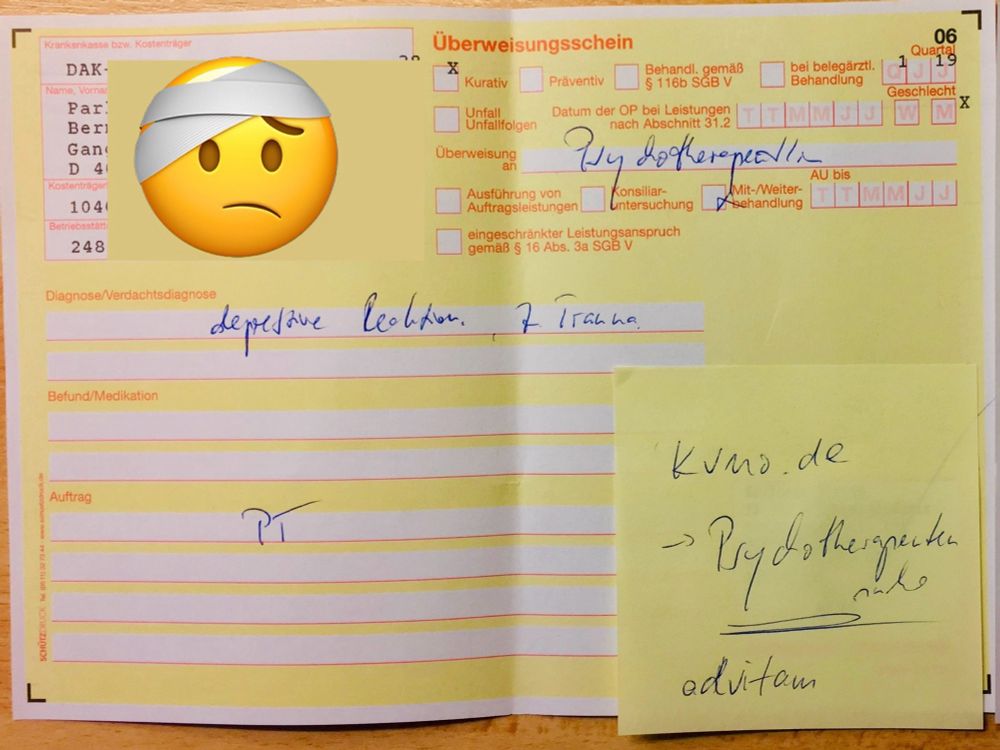 Krankenkasse bzw. Kostenträger
DAK-
Name, Vornam
Par
Ber
Gan
D 4
Kostenträger
104
Betriebsstätt
248
Überweisungsschein
06
Quartal
Q J J
1 19
X
Kurativ
Präventiv
Behandl. gemäß
§ 116b SGB V
bei belegärztl.
Behandlung
Geschlecht
Unfall
Unfallfolgen
Datum der OP bei Leistungen
nach Abschnitt 31.2
T T M M J J
W
M
X
Überweisung
an
Psychotherapeut/in
AU bis
Ausführung von
Auftragsleistungen
Konsiliar-
untersuchung
x
Mit-/Weiter-
behandlung
T T M M J J
eingeschränkter Leistungsanspruch
gemäß § 16 Abs. 3a SGB V
Diagnose/Verdachtsdiagnose
depressive Reaktion, Z. Trauma
Befund/Medikation
Auftrag
PT
SCHÜTZDRUCK
kvno.de
→ Psychotherapeuten
suche
advitam